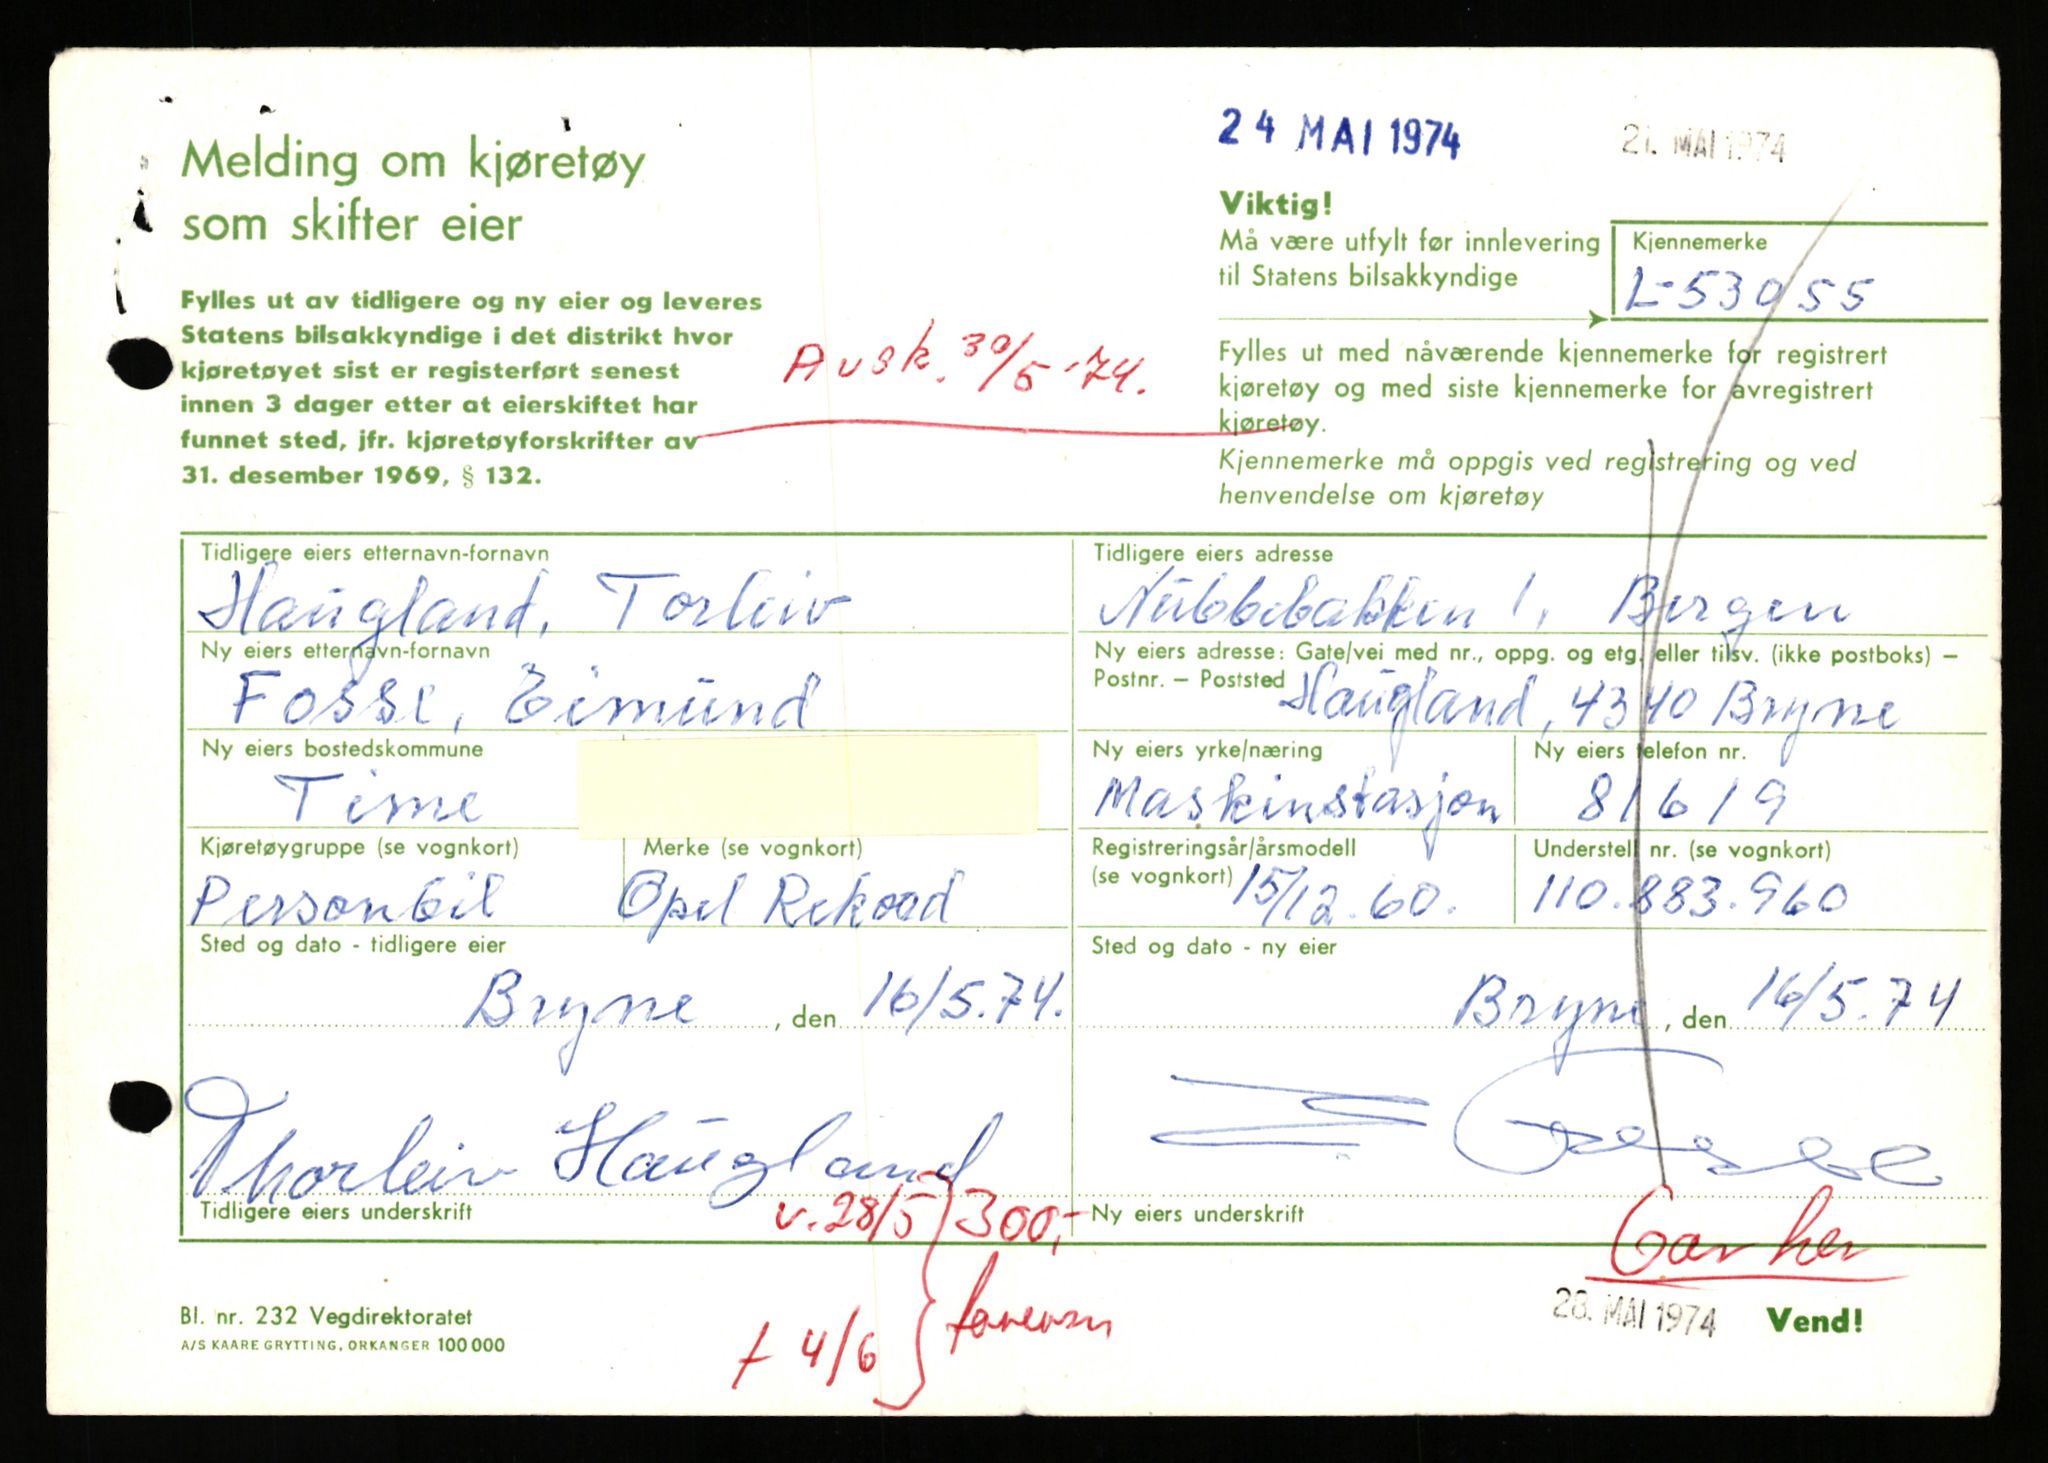 24 MAI 1974
21. MAI 1974
Melding om kjøretøy
som skifter eier
Fylles ut av tidligere og ny eier og leveres
Statens bilsakkyndige i det distrikt hvor
kjøretøyet sist er registerført senest
innen 3 dager etter at eierskiftet har
funnet sted, jfr. kjøretøyforskrifter av
31. desember 1969, § 132.
Avsk. 30/5-74.
Viktig!
Må være utfylt før innlevering
til Statens bilsakkyndige
Kjennemerke
L-53055
Fylles ut med nåværende kjennemerke for registrert
kjøretøy og med siste kjennemerke for avregistrert
kjøretøy.
Kjennemerke må oppgis ved registrering og ved
henvendelse om kjøretøy
Tidligere eiers etternavn-fornavn
Haugland, Torleiv
Tidligere eiers adresse
Nubbebakken 1, Bergen
Ny eiers etternavn-fornavn
Fosse, Eimund
Ny eiers adresse: Gate/vei med nr., oppg. og etg. eller tilsv. (ikke postboks) –
Postnr. – Poststed Haugland, 4340 Bryne
Ny eiers bostedskommune
Time
Ny eiers yrke/næring
Maskinstasjon
Ny eiers telefon nr.
81619
Kjøretøygruppe (se vognkort)
Personbil
Merke (se vognkort)
Opel Rekord
Registreringsår/årsmodell
(se vognkort) 15/12.60.
Understell nr. (se vognkort)
110.883.960
Sted og dato - tidligere eier
Bryne, den 16/5.74.
Sted og dato - ny eier
Bryne, den 16/5.74
Thorleiv Haugland
Fosse
Tidligere eiers underskrift
Ny eiers underskrift
v. 28/5 300,-
+ 4/6
28. MAI 1974
Vend!
Bl. nr. 232 Vegdirektoratet
A/S KAARE GRYTTING, ORKANGER 100 000